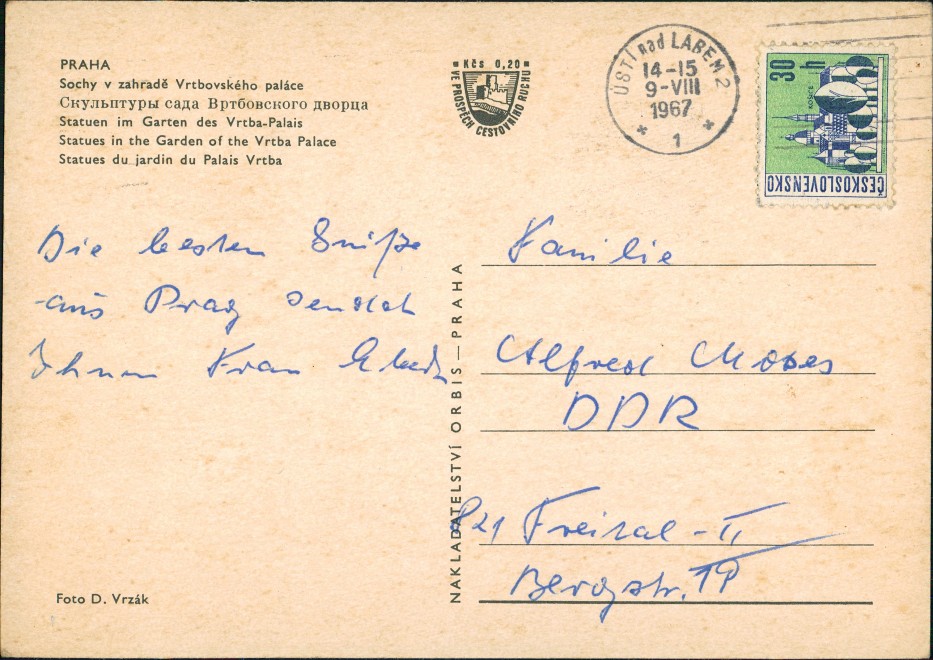 PRAHA
Sochy v zahradě Vrtbovského paláce
Скульптуры сада Вртбовского дворца
Statuen im Garten des Vrtba-Palais
Statues in the Garden of the Vrtba Palace
Statues du jardin du Palais Vrtba
Kčs 0,20
VE PROSPĚCH CESTOVNÍHO RUCHU
ÚSTÍ nad LABEM 2
14-15
9-VIII
1967
1
30 h
ČESKOSLOVENSKO
Die besten Grüße
aus Prag sendet
Ihnen Frau
NAKLADATELSTVÍ ORBIS — PRAHA
Familie
Alfred Moses
DDR
821 Freital - II
Bergstr. 19
Foto D. Vrzák